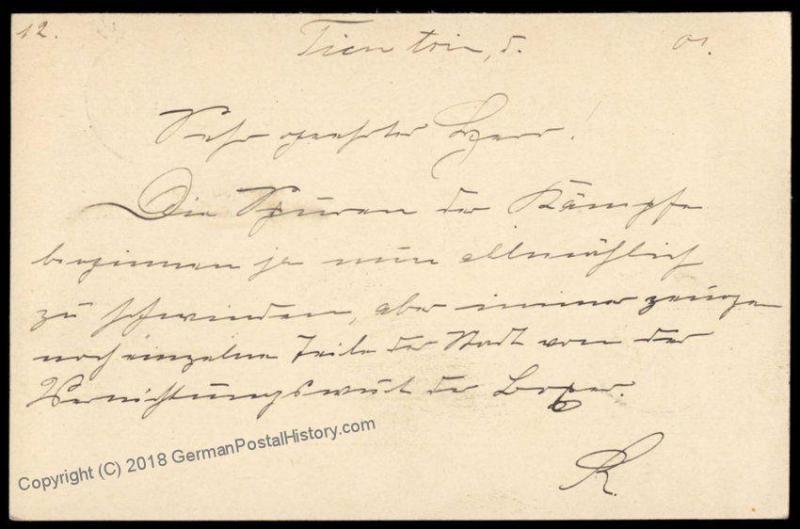 12.
Tientsin, d. 01.
Sehr geehrter Herr!
Die Spuren der Kämpfe
beginnen ja nun allmählich
zu schwinden, aber immer zeugen
noch einzelne Teile der Stadt von der
Vernichtungswut der Boxer.
R.
Copyright (C) 2018 GermanPostalHistory.com